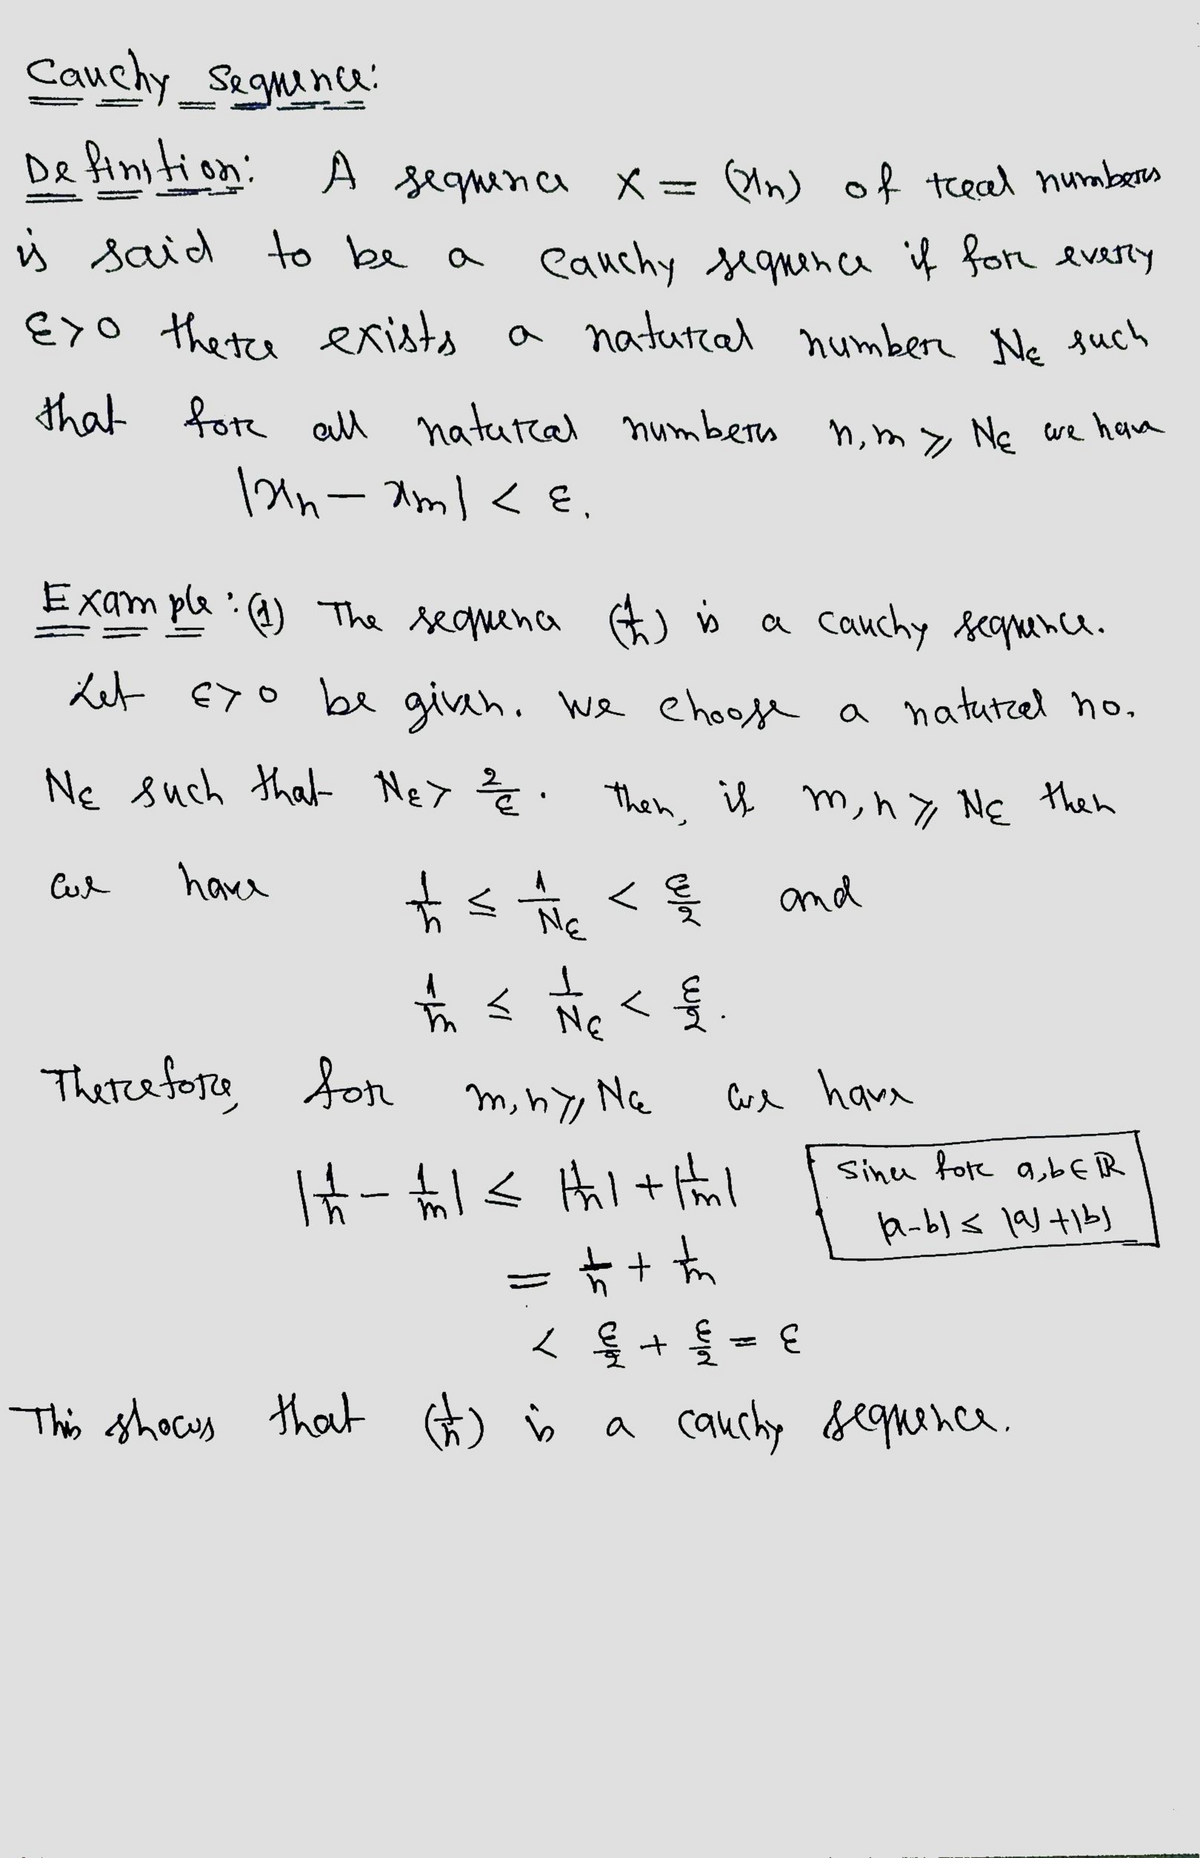 Cauchy Sequence:
Definition: A sequence X = (xₙ) of real numbers
is said to be a Cauchy sequence if for every
ε > 0 there exists a natural number Nε such
that for all natural numbers n, m ≥ Nε we have
|xₙ - xₘ| < ε.
Example: (1) The sequence (1/n) is a Cauchy sequence.
Let ε > 0 be given. We choose a natural no.
Nε such that Nε > 2/ε. Then, if m, n ≥ Nε then
we have 1/n ≤ 1/Nε < ε/2 and
1/m ≤ 1/Nε < ε/2.
Therefore, for m, n ≥ Nε we have
|1/n - 1/m| ≤ |1/n| + |1/m|
Since for a, b ∈ ℝ
|a-b| ≤ |a| + |b|
= 1/n + 1/m
< ε/2 + ε/2 = ε
This shows that (1/n) is a Cauchy sequence.